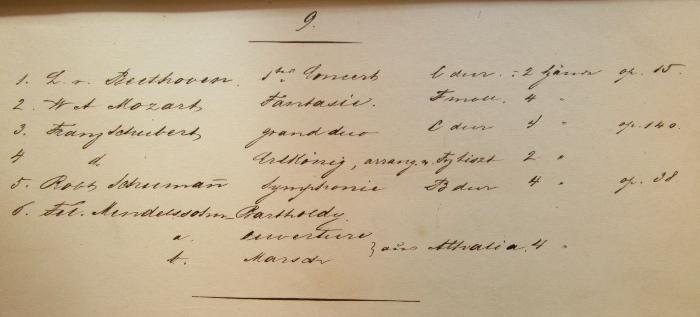 9.
1. L. v. Beethoven. 1tes Concert C dur. 2 händ op. 15.
2. W A Mozart Fantasie. F moll. 4 "
3. Franz Schubert grand duo C dur 4 " op. 140.
4 d. Erlkönig, arrang. v. Fz Liszt 2 "
5. Robt Schumañ Symphonie B dur 4 " op. 38
6. Fel. Mendelssohn-Bartholdy.
a. Ouverture
b. Marsch } aus Athalia. 4 "